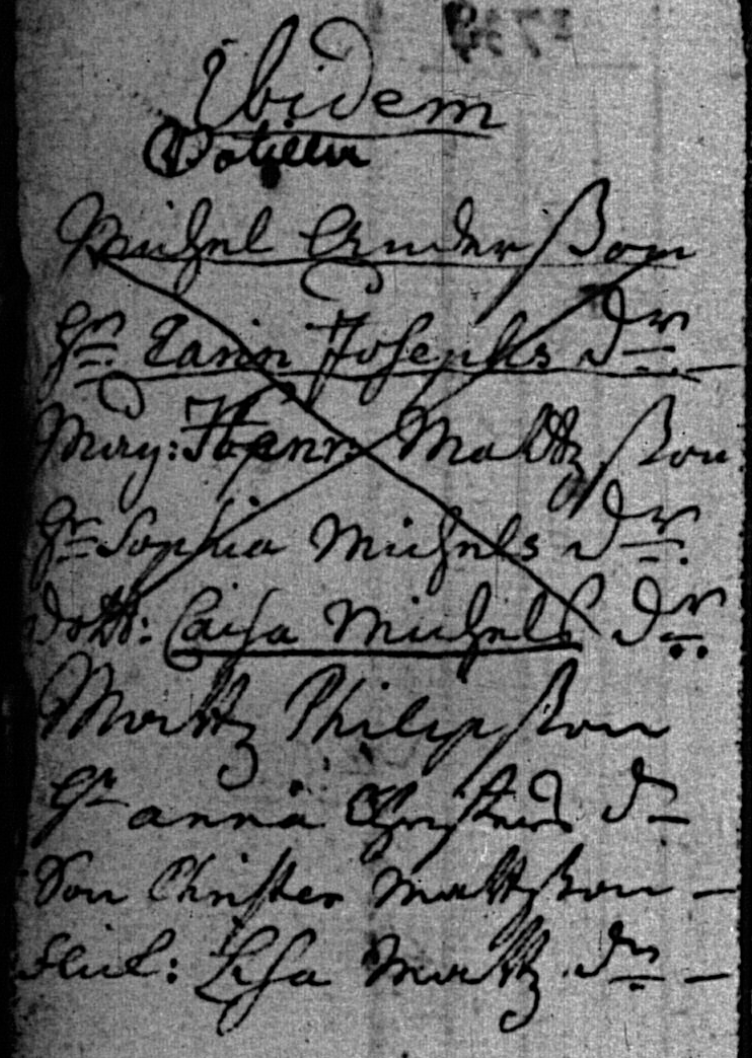 Ibidem
Michel Anderßon
Hu Carin Josephs dr
Måg: Henr: Mattzßon
Hu Sophia Michels dr
dott: Caisa Michels dr
Mattz Philipßon
Hu anna Christers dr
Son Christer Mattzßon
Lisa Mattz dr